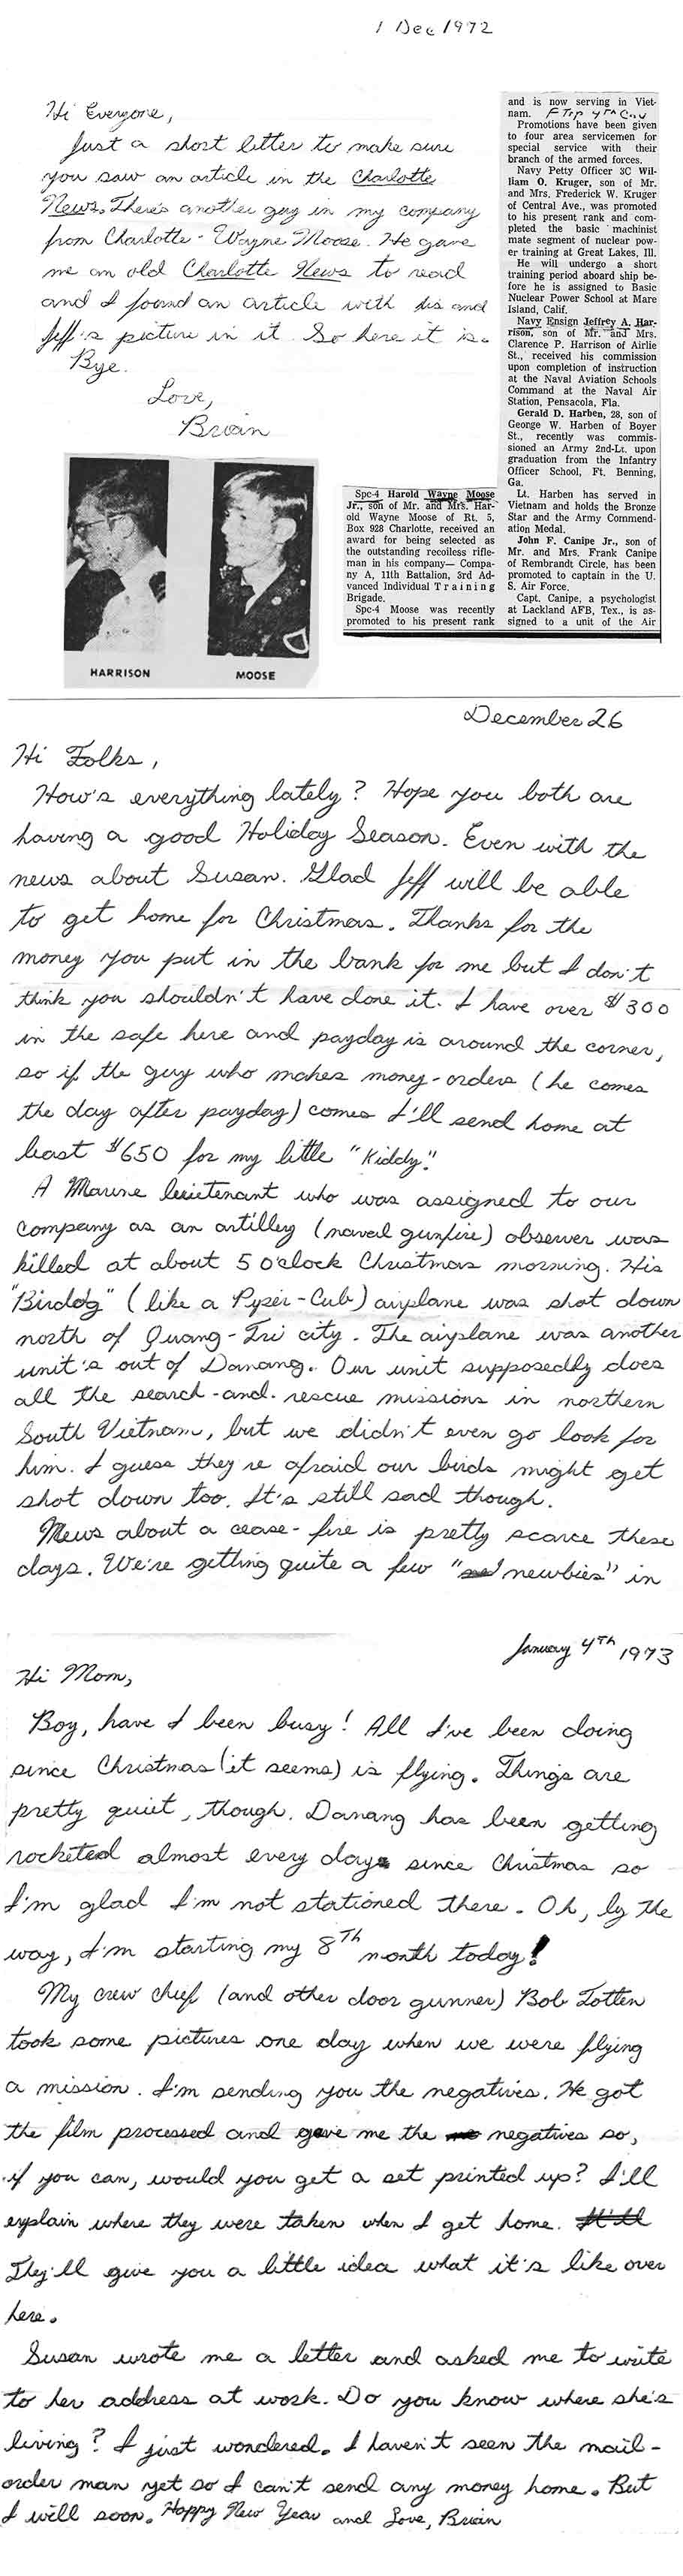 1 Dec 1972
Hi Everyone,
Just a short letter to make sure
you saw an article in the Charlotte
News. There's another guy in my company
from Charlotte - Wayne Moose. He gave
me an old Charlotte News to read
and I found an article with his and
Jeff's picture in it. So here it is.
Bye.
Love,
Brian
HARRISON
MOOSE
Spc-4 Harold Wayne Moose
Jr., son of Mr. and Mrs. Har-
old Wayne Moose of Rt. 5,
Box 928 Charlotte, received an
award for being selected as
the outstanding recoiless rifle-
man in his company— Compa-
ny A, 11th Battalion, 3rd Ad-
vanced Individual Training
Brigade.
Spc-4 Moose was recently
promoted to his present rank
and is now serving in Viet-
nam. F Trp 4Th Cav
Promotions have been given
to four area servicemen for
special service with their
branch of the armed forces.
Navy Petty Officer 3C Wil-
liam O. Kruger, son of Mr.
and Mrs. Frederick W. Kruger
of Central Ave., was promoted
to his present rank and com-
pleted the basic machinist
mate segment of nuclear pow-
er training at Great Lakes, Ill.
He will undergo a short
training period aboard ship be-
fore he is assigned to Basic
Nuclear Power School at Mare
Island, Calif.
Navy Ensign Jeffrey A. Har-
rison, son of Mr. and Mrs.
Clarence P. Harrison of Airlie
St., received his commission
upon completion of instruction
at the Naval Aviation Schools
Command at the Naval Air
Station, Pensacola, Fla.
Gerald D. Harben, 28, son of
George W. Harben of Boyer
St., recently was commis-
sioned an Army 2nd-Lt. upon
graduation from the Infantry
Officer School, Ft. Benning,
Ga.
Lt. Harben has served in
Vietnam and holds the Bronze
Star and the Army Commend-
ation Medal.
John F. Canipe Jr., son of
Mr. and Mrs. Frank Canipe
of Rembrandt Circle, has been
promoted to captain in the U.
S. Air Force.
Capt. Canipe, a psychologist
at Lackland AFB, Tex., is as-
signed to a unit of the Air
December 26
Hi Folks,
How's everything lately? Hope you both are
having a good Holiday Season. Even with the
news about Susan. Glad Jeff will be able
to get home for Christmas. Thanks for the
money you put in the bank for me but I don't
think you shouldn't have done it. I have over $300
in the safe here and payday is around the corner,
so if the guy who makes money-orders (he comes
the day after payday) comes I'll send home at
least $650 for my little "Kiddy".
A Marine lieutenant who was assigned to our
company as an artilley (naval gunfire) observer was
killed at about 5 o'clock Christmas morning. His
"Birdog" (like a Pyper-Cub) airplane was shot down
north of Quang-Tri city. The airplane was another
unit's out of Danang. Our unit supposedly does
all the search-and-rescue missions in northern
South Vietnam, but we didn't even go look for
him. I guess they're afraid our birds might get
shot down too. It's still sad though.
News about a cease-fire is pretty scarce these
days. We're getting quite a few "newbies" in
January 4Th 1973
Hi Mom,
Boy, have I been busy! All I've been doing
since Christmas (it seems) is flying. Things are
pretty quiet, though. Danang has been getting
rocketed almost every day since Christmas so
I'm glad I'm not stationed there. Oh, by the
way, I'm starting my 8Th month today!
My crew chief (and other door gunner) Bob Totten
took some pictures one day when we were flying
a mission. I'm sending you the negatives. He got
the film processed and gave me the negatives so,
if you can, would you get a set printed up? I'll
explain where they were taken when I get home. It'll
They'll give you a little idea what it's like over
here.
Susan wrote me a letter and asked me to write
to her address at work. Do you know where she's
living? I just wondered. I haven't seen the mail-
order man yet so I can't send any money home. But
I will soon. Happy New Year and Love, Brian